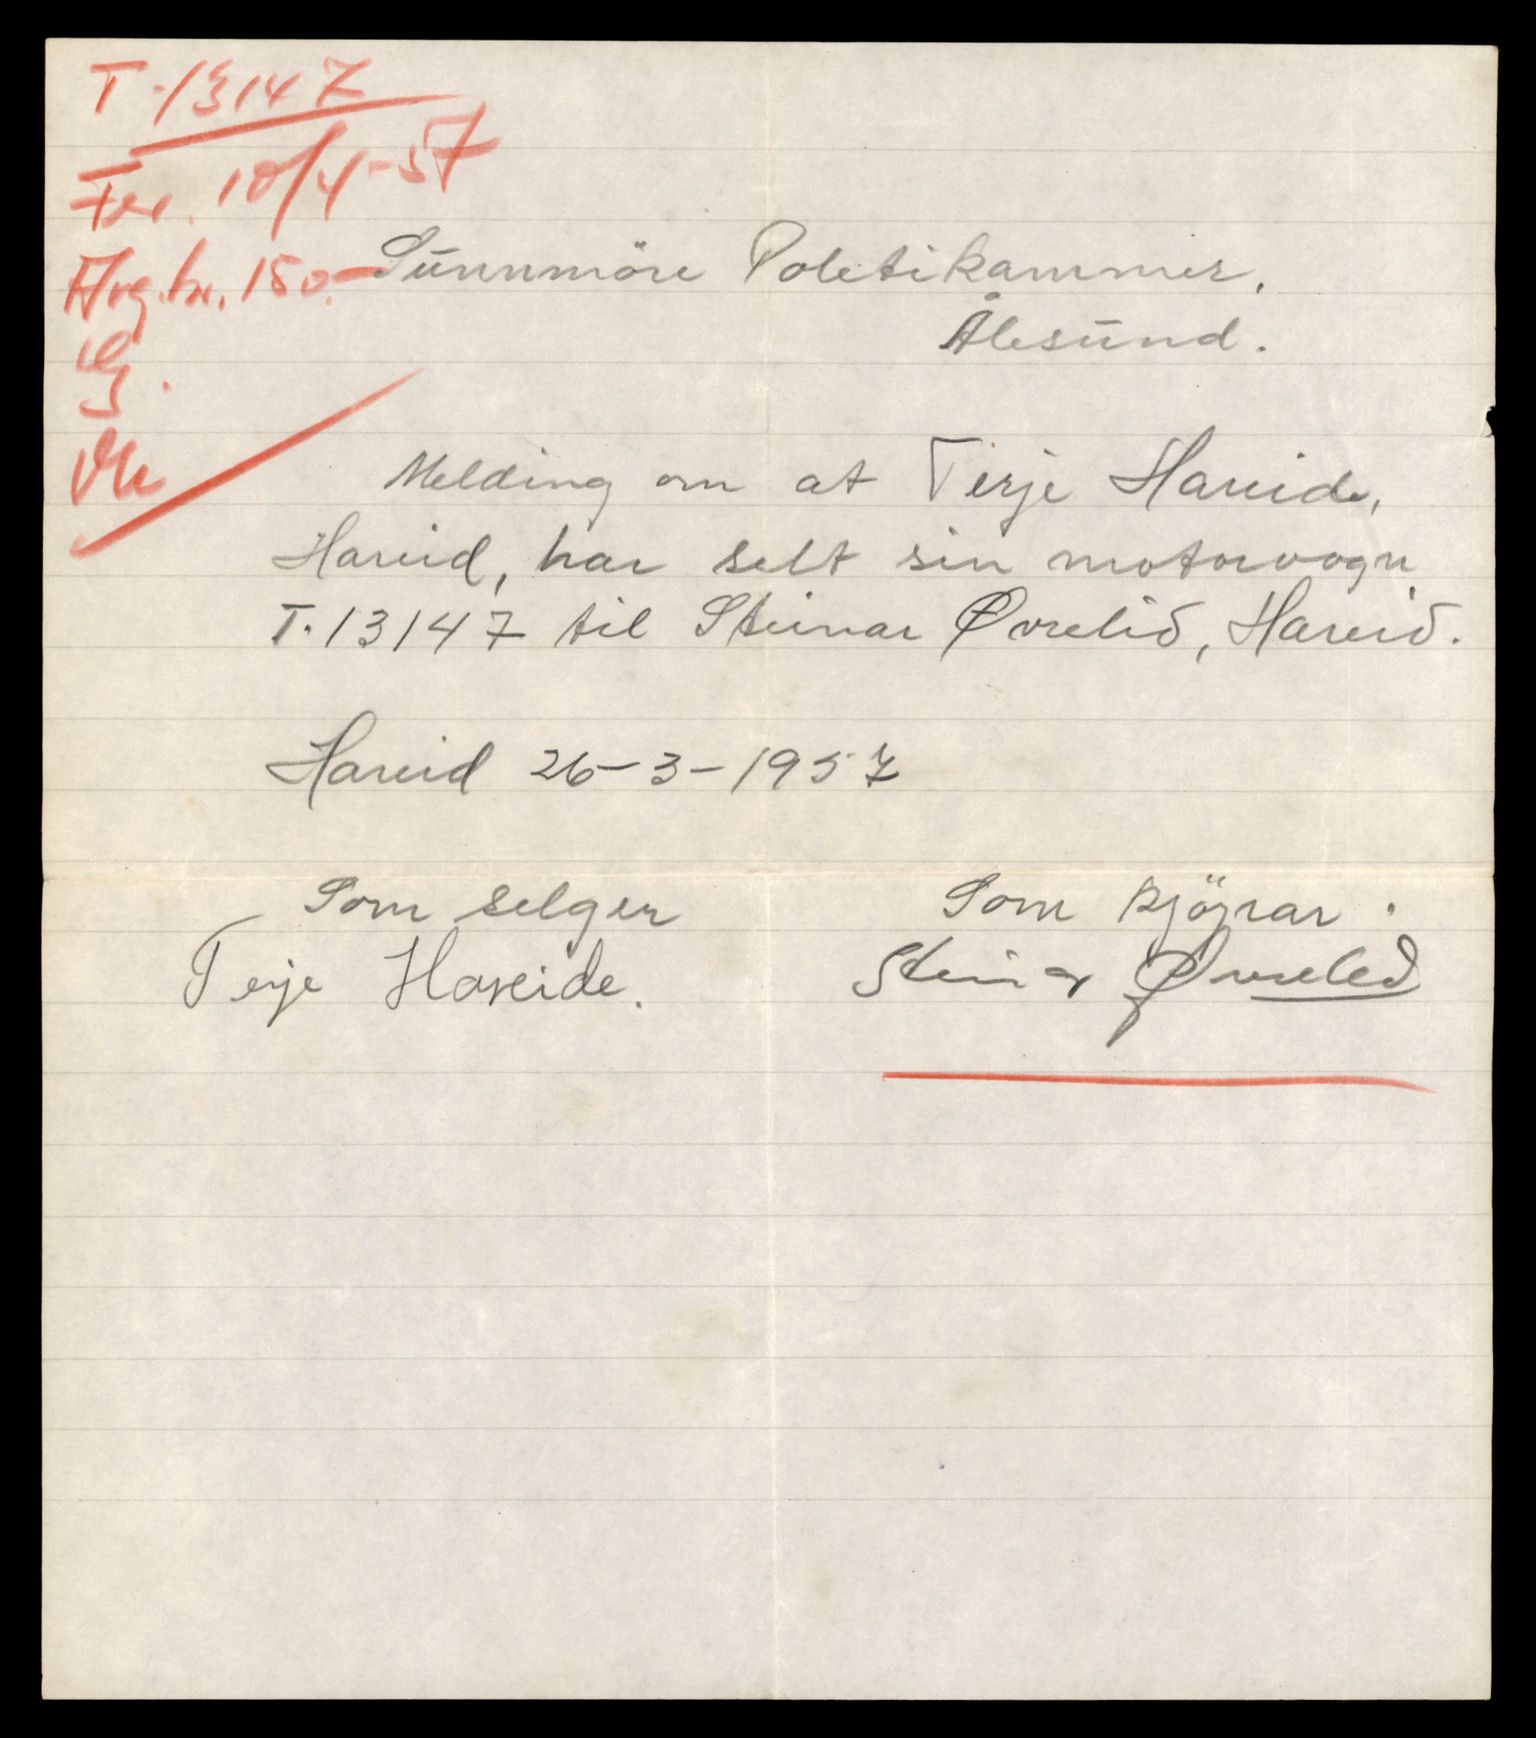 T-13147
10/4-57
Avg. kr. 150.-
Sunnmöre Politikammer,
Ålesund.
Melding om at Terje Hareide,
Hareid, har selt sin motorvogn
T.13147 til Steinar Øvrelid, Hareid.
Hareid 26-3-1957
Som selger
Som kjöpar.
Terje Hareide.
Steinar Øvrelid